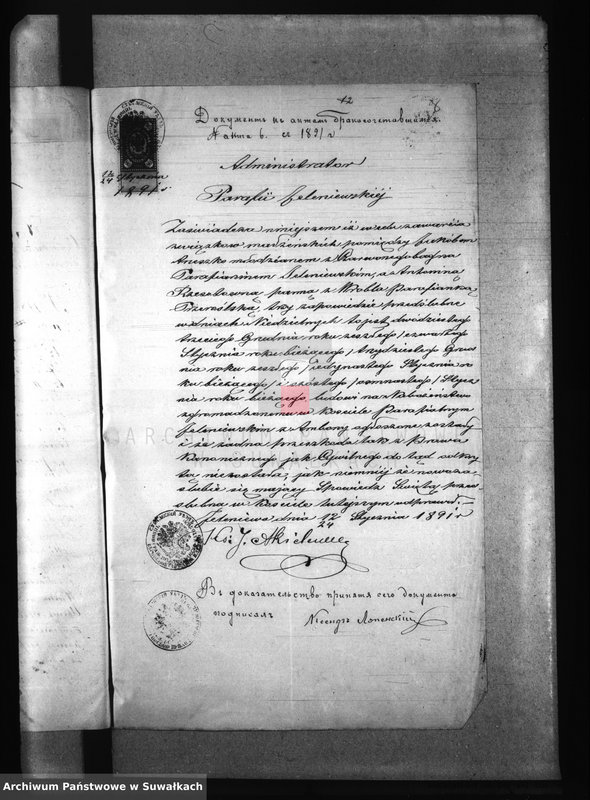 12
Документъ къ актамъ бракосочетавшихся.
№ акта 6. 1891 г
12/24 Stycznia
1891 r
Administrator
Parafii Jeleniewskiéj
Zaświadcza niniejszem iż w celu zawarcia
związków małżeńskich pomiędzy Jakóbem
młodzianem z
Parafianinem Jeleniewskim, a Antoniną
panną z Wróbla Parafianką
Przeroślską, trzy zapowiedzie przedślubne
w dniach Niedzielnych to jest dwódziestego
trzeciego Grudnia roku zeszłego / czwartego
Stycznia roku bieżącego / trzydziestego Grud
nia roku zeszłego / jedynastego Stycznia ro
ku bieżącego, i szóstego / osmnastego / Stycz
nia roku bieżącego, ludowi na Nabożeństwo
zgromadzonemu w Kościele Parafialnym
Jeleniewskim z Ambony ogłoszone zostały
i że żadna przeszkoda tak z Prawa
Kanonicznego jak Cywilnego do tąd odkry
tą niezostała, jak niemniéj że nowoza-
ślubić się mający Spowiedź Świętą przed
ślubną w Kościele tutejszym odprawił.
Jeleniewo dnia 12/24 Stycznia 1891 r
Ks: J.
Въ доказательство принятія сего документа
подписалъ Ксендзъ
ARC
Archiwum Państwowe w Suwałkach